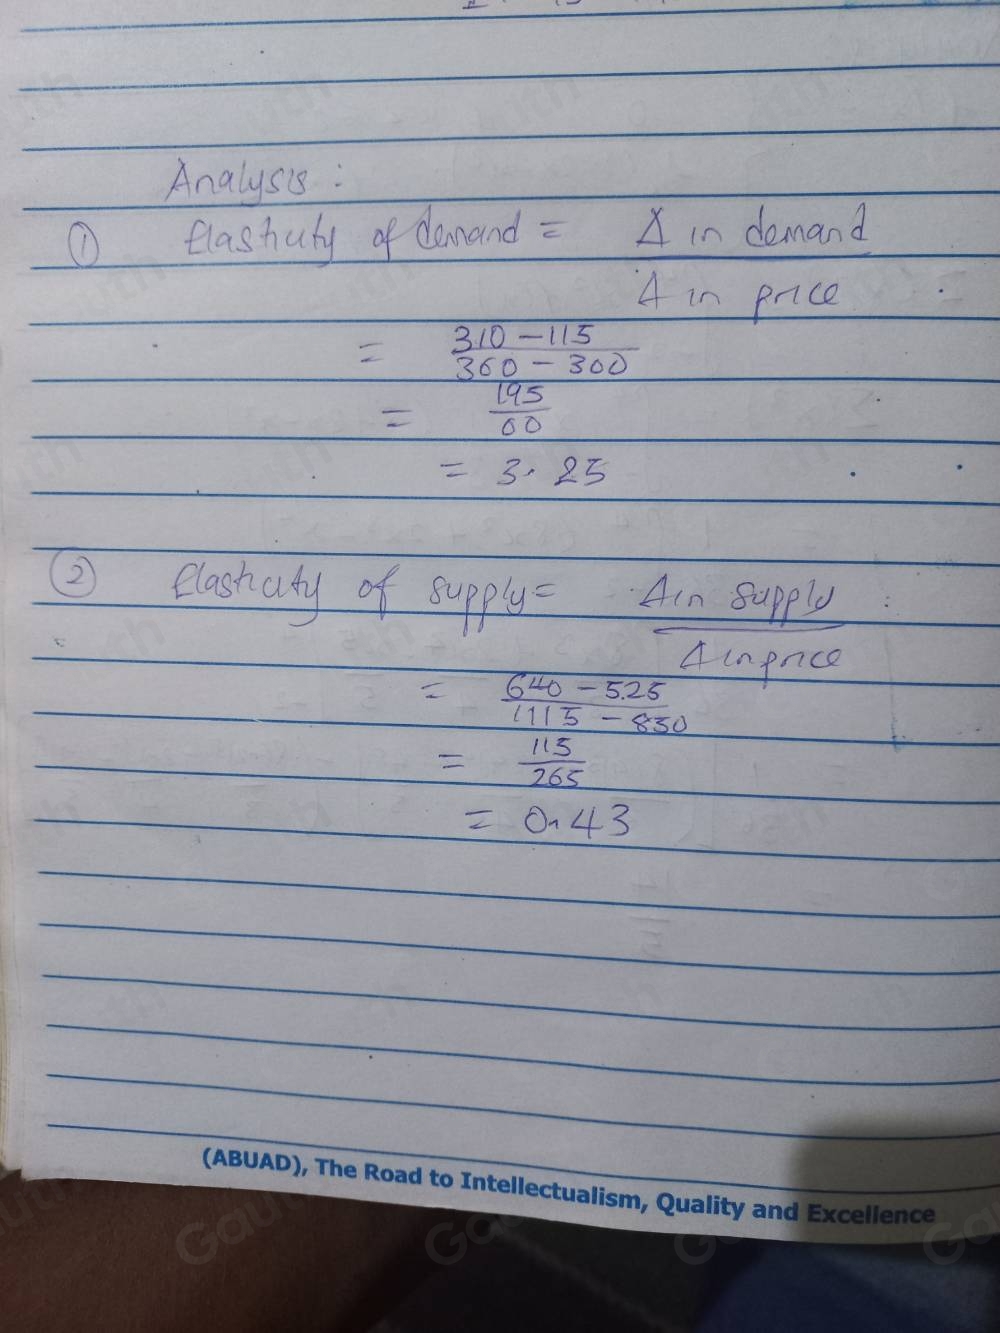 Analysis:
① Elasticity of demand = Δ in demand
Δ in price
= 310 - 115
360 - 300
= 195
60
= 3.25
② Elasticity of supply = Δ in supply
Δ in price
= 640 - 525
1115 - 850
= 115
265
= 0.43
(ABUAD), The Road to Intellectualism, Quality and Excellence